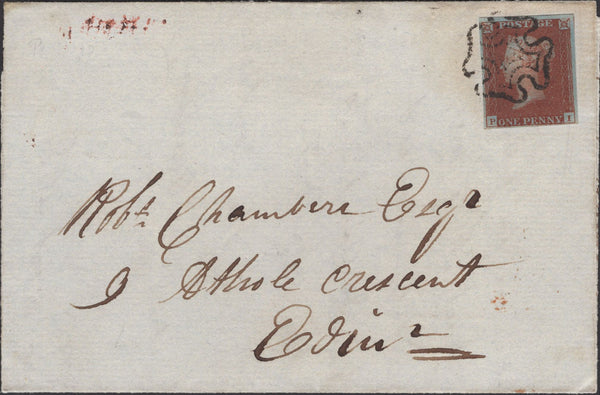 POSTAGE
P ONE PENNY I
Robt. Chambers Esqr
9 Athole Crescent
Edinr